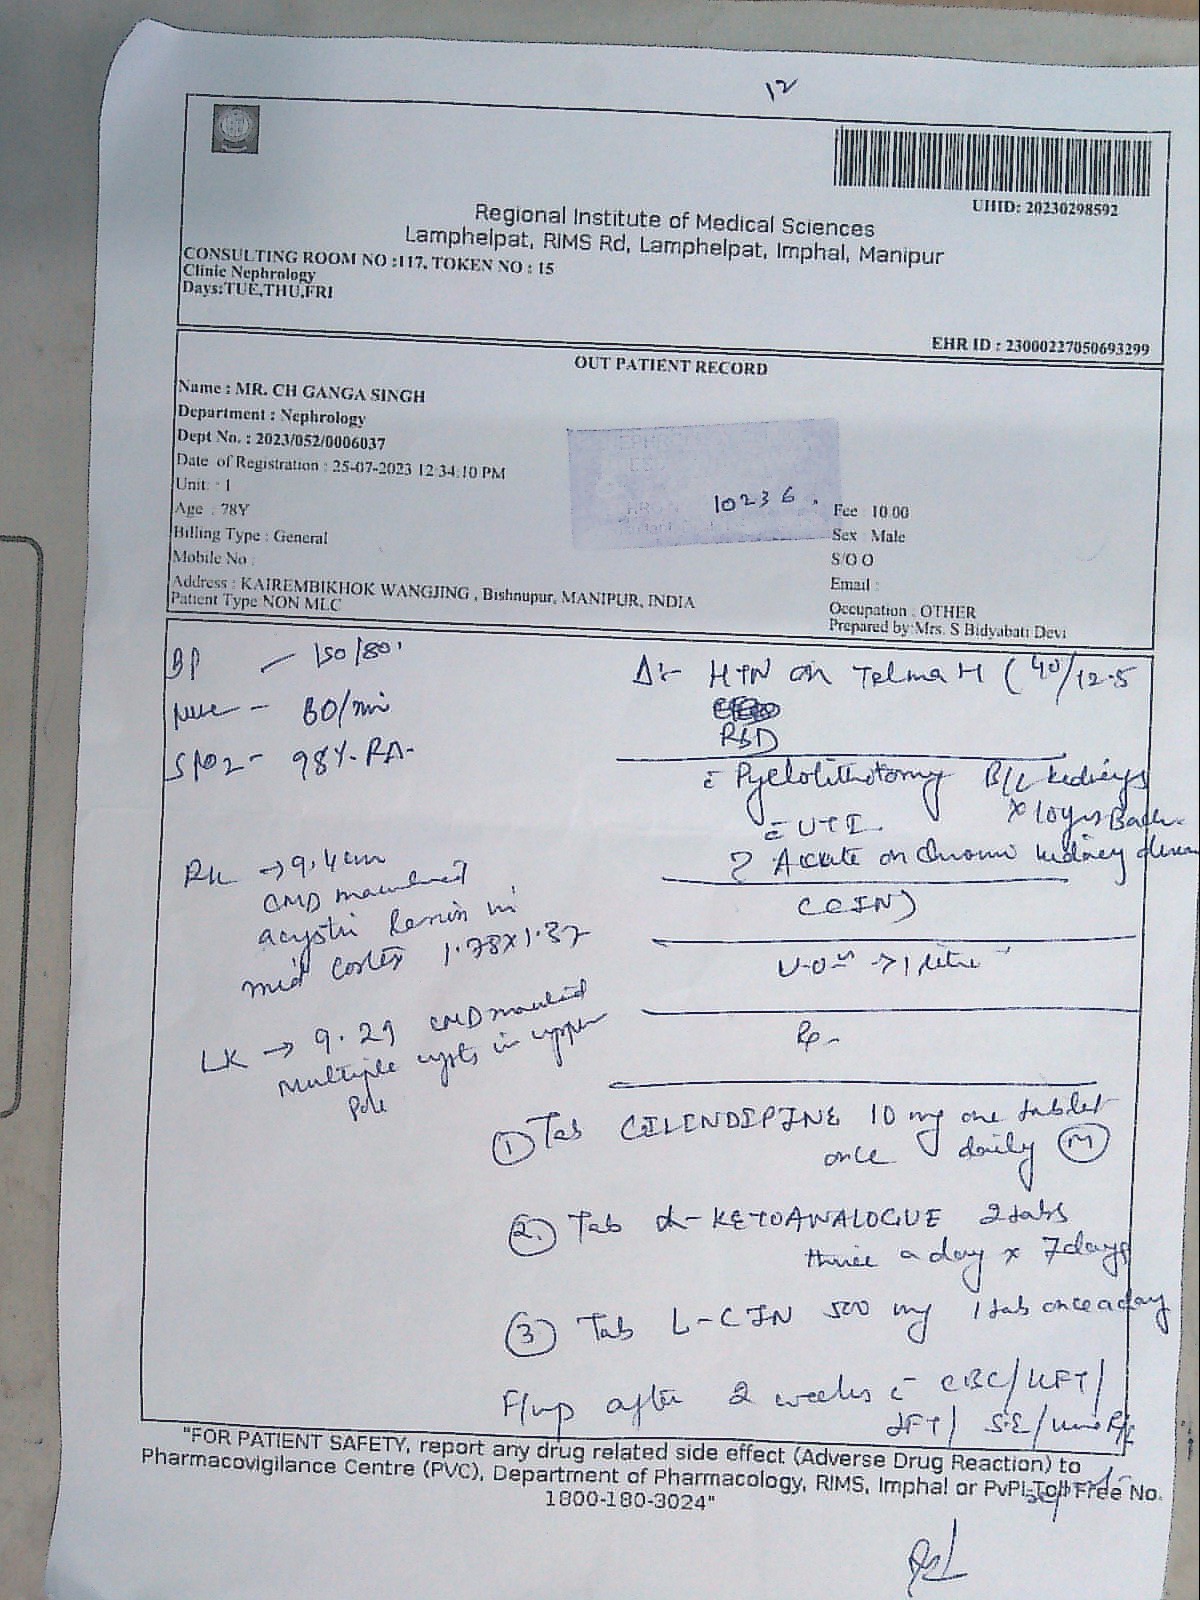 12
UHID: 20230298592
Regional Institute of Medical Sciences
Lamphelpat, RIMS Rd, Lamphelpat, Imphal, Manipur
CONSULTING ROOM NO :117, TOKEN NO : 15
Clinic Nephrology
Days:TUE,THU,FRI
EHR ID : 23000227050693299
OUT PATIENT RECORD
Name : MR. CH GANGA SINGH
Department : Nephrology
Dept No. : 2023/052/0006037
Date of Registration : 25-07-2023 12:34:10 PM
Unit: : 1
Age : 78Y
Billing Type : General
Mobile No :
Address : KAIREMBIKHOK WANGJING , Bishnupur, MANIPUR, INDIA
Patient Type NON MLC
10236.
Fee : 10.00
Sex : Male
S/O O
Email :
Occupation : OTHER
Prepared by:Mrs. S Bidyabati Devi
BP - 150/80
80/min
SPO2 - 98%. RA-
RK → 9.4cm
CMD maintained
a cystic lesion in
mid cortex 1.78x1.37
LK → 9.29 CMD maintained
Multiple cysts in upper
pole
Δ:- HTN on Telma H (40/12.5
RSD
c̄ Pyelolithotomy B/L kidneys
x 10yrs Back
c̄ UTI
? Acute on chronic kidney disease
(CIN)
U.O → 1 litre
Rp-
① Tab CILINDIPINE 10 mg one tablet
once daily (M)
②. Tab α-KETOANALOGUE 2 tabs
thrice a day x 7days
③ Tab L-CIN 500 mg 1 tab once a day
F/up after 2 weeks c̄ CBC/KFT/
LFT/ S.E/ urine R/E
"FOR PATIENT SAFETY, report any drug related side effect (Adverse Drug Reaction) to
Pharmacovigilance Centre (PVC), Department of Pharmacology, RIMS, Imphal or PvPI-Toll Free No.
1800-180-3024"